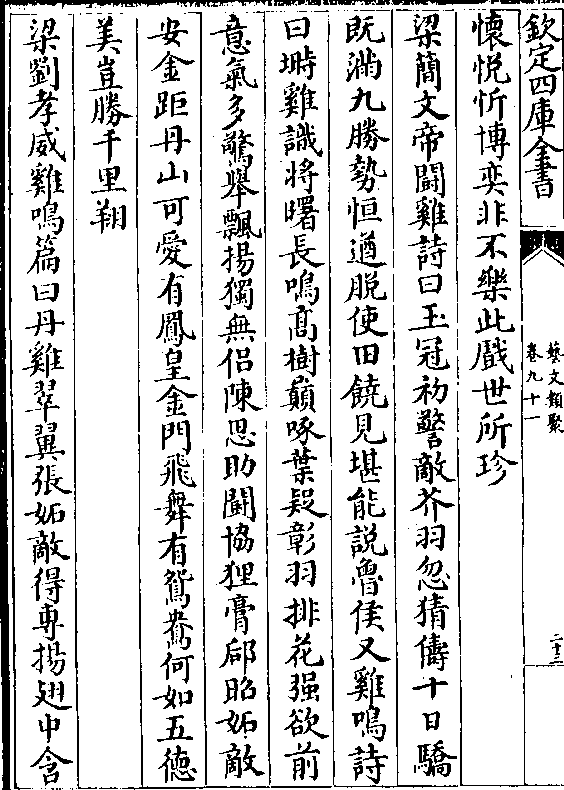 欽定四庫全書
藝文類聚
卷九十一
二十三
懷悦忻博奕非不樂此戲世所珍
梁簡文帝鬬雞詩曰玉冠初警敵芥羽忽猜儔十日驕
既滿九勝勢恒遒脱使田饒見堪能説魯侯又雞鳴詩
曰塒雞識將曙長鳴髙樹巔啄葉疑彰羽排花强欲前
意氣多驚舉飄揚獨無侣陳思助鬬協狸膏郈昭妬敵
安金距丹山可愛有鳳皇金門飛舞有鴛鴦何如五徳
美豈勝千里翔
梁劉孝威雞鳴篇曰丹雞翠翼張妬敵得専揚翅中含